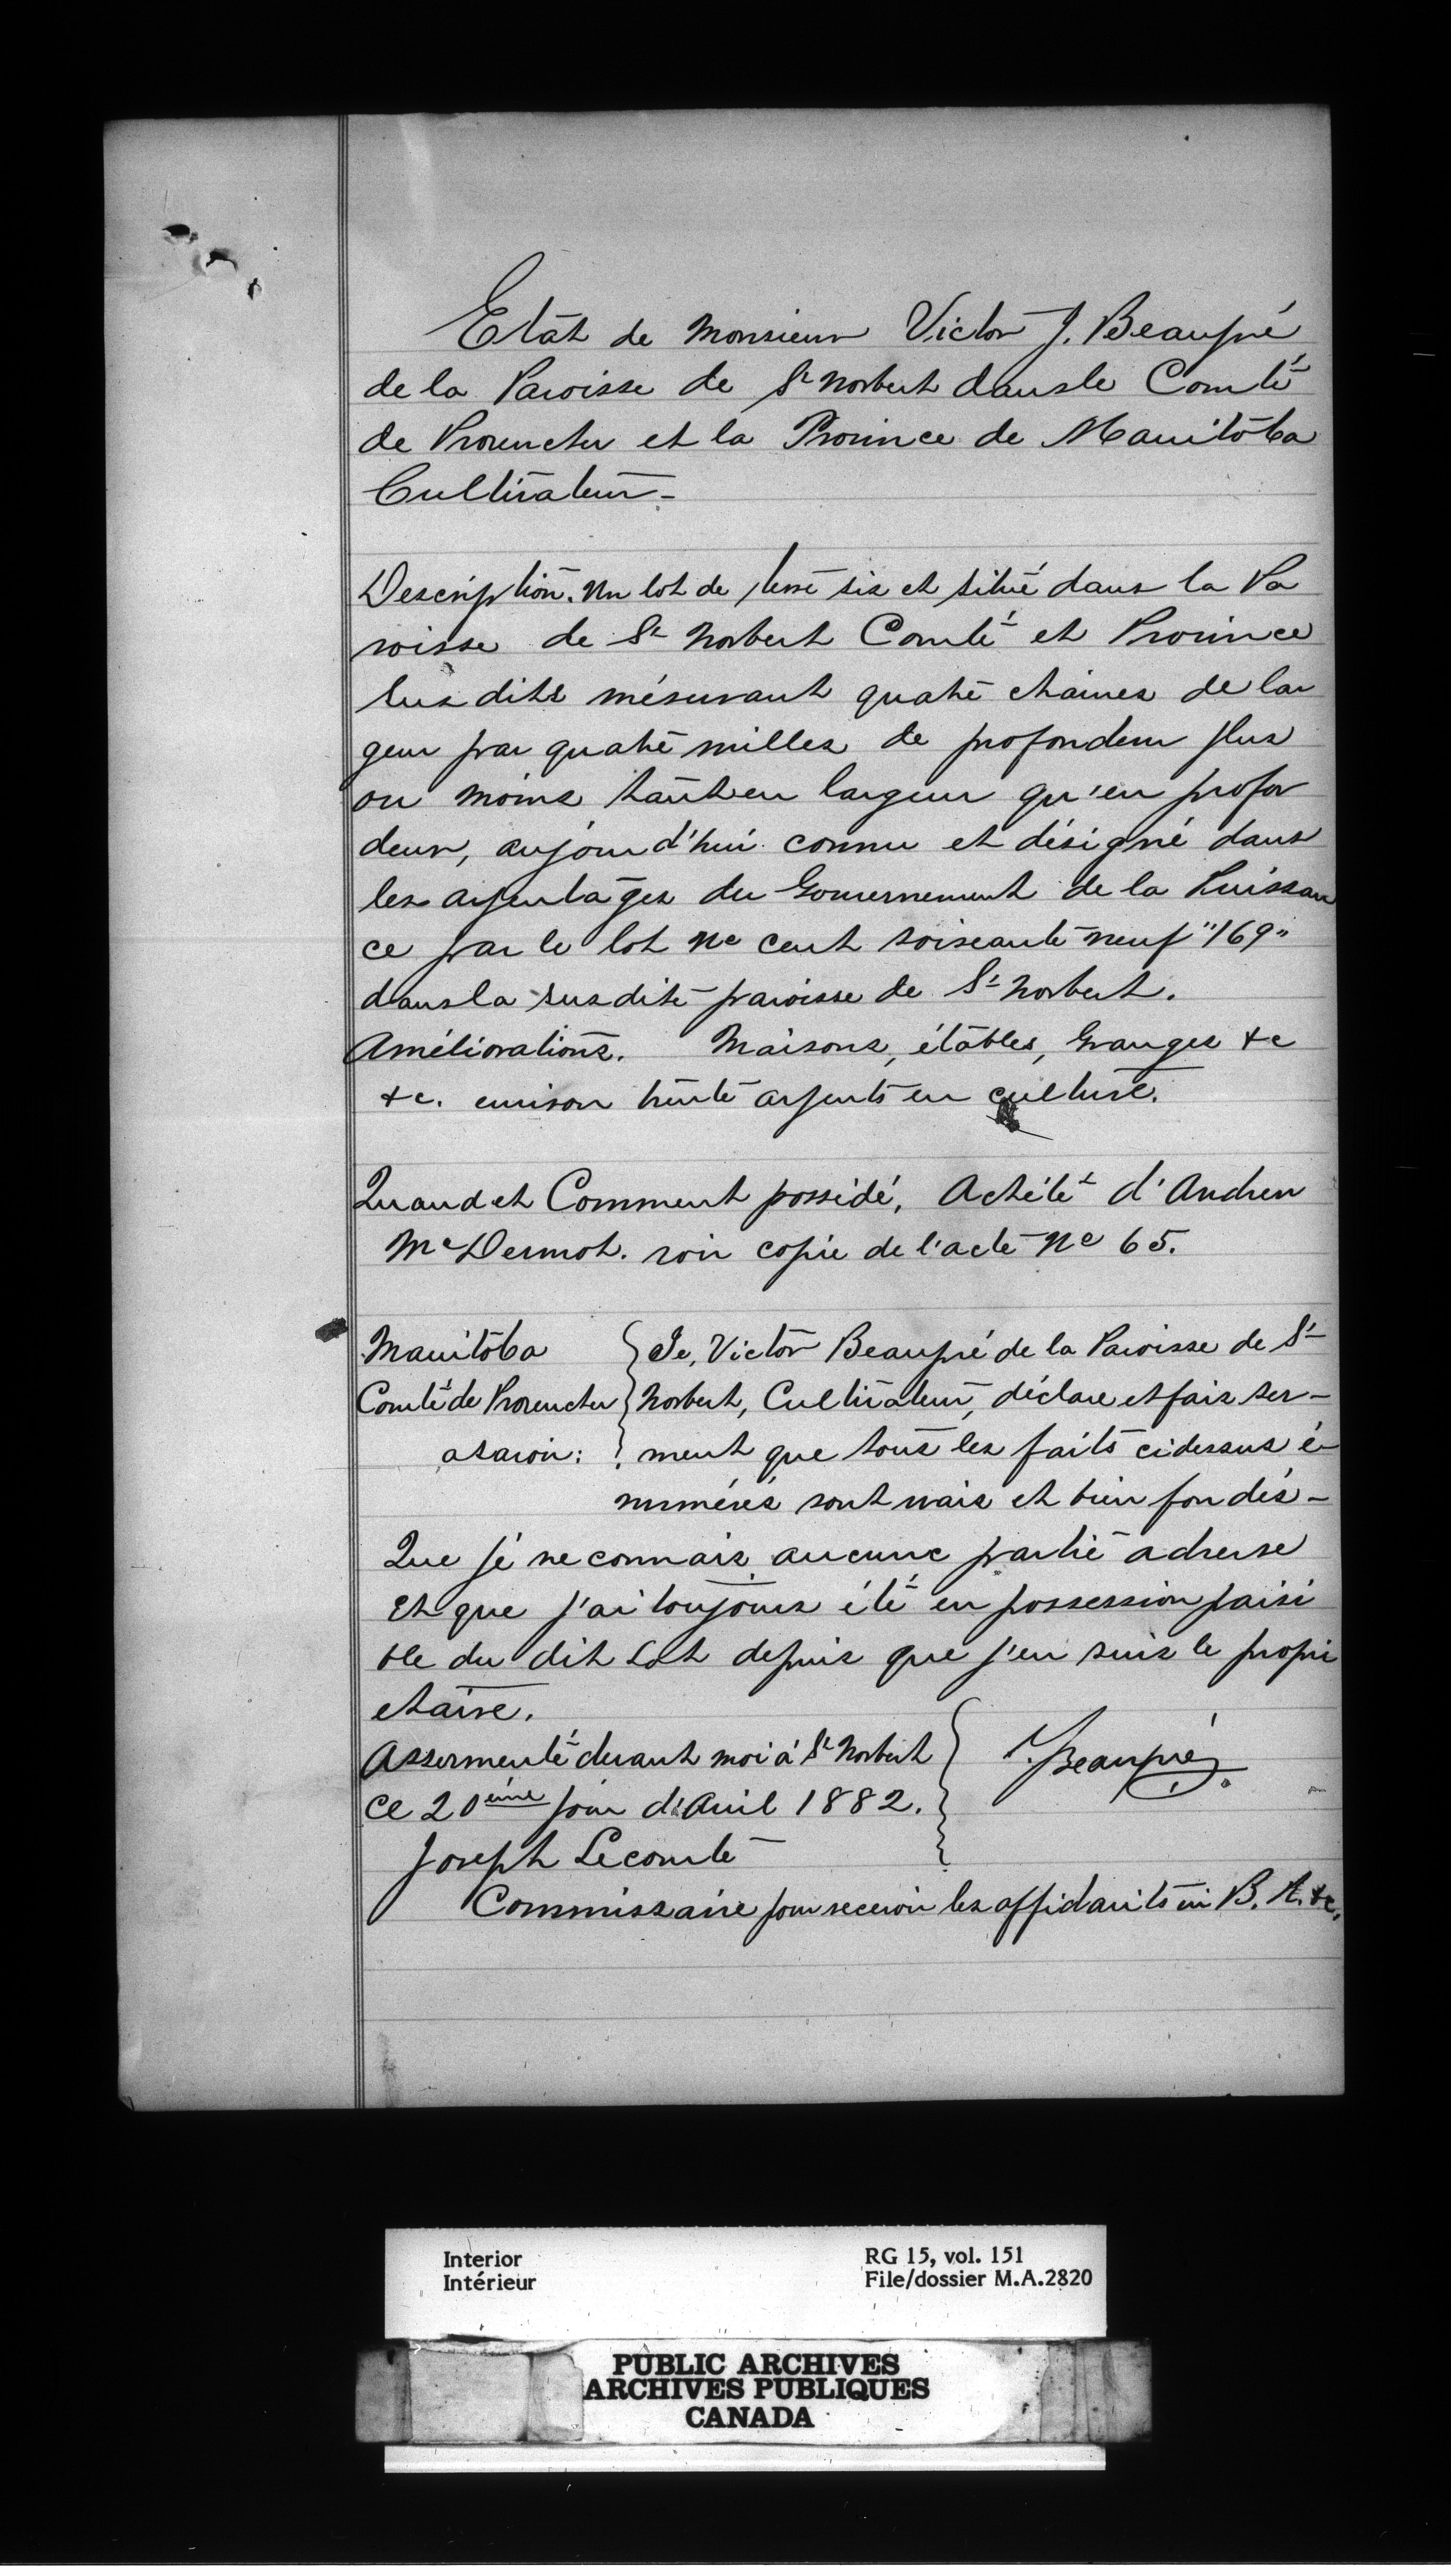 Etat de Monsieur Victor J. Beaupré
de la Paroisse de St Norbert dans le Comté
de Provencher et la Province de Manitoba
Cultivateur -
Description. Un lot de terre sis et situé dans la Pa
roisse de St Norbert Comté et Province
sus dits mésurant quatre chaines de lar
geur par quatre milles de profondeur plus
ou moins tant en largeur qu'en profon
deur, aujourd'hui connu et désigné dans
les arpentages du Gouvernement de la Puissan
ce par le lot No cent soiseante neuf "169"
dans la susdite paroisse de St Norbert.
Améliorations. Maisons, étables, Granges &c
&c. environ trente arpents en culture.
Quand et Comment possédé, Acheté d'Andrew
McDermot. voir copie de l'acte No 65.
Manitoba } Je, Victor Beaupré de la Paroisse de St
Comté de Provencher } Norbert, Cultivateur, déclare et fais ser-
a savoir: } ment que tous les faits cidessus é-
numérés sont vrais et bien fondés -
Que je ne connais aucune partie adverse
Et que j'ai toujours été en possession paisi
ble du dit Lot depuis que j'en suis le propri
etaire.
Assermenté devant moi à St Norbert } V. Beaupré
ce 20ème jour d'Avril 1882.
Joseph Lecomte
Commissaire pour recevoir les affidavits en B. R. &c.
Interior RG 15, vol. 151
Intérieur File/dossier M.A.2820
PUBLIC ARCHIVES
ARCHIVES PUBLIQUES
CANADA